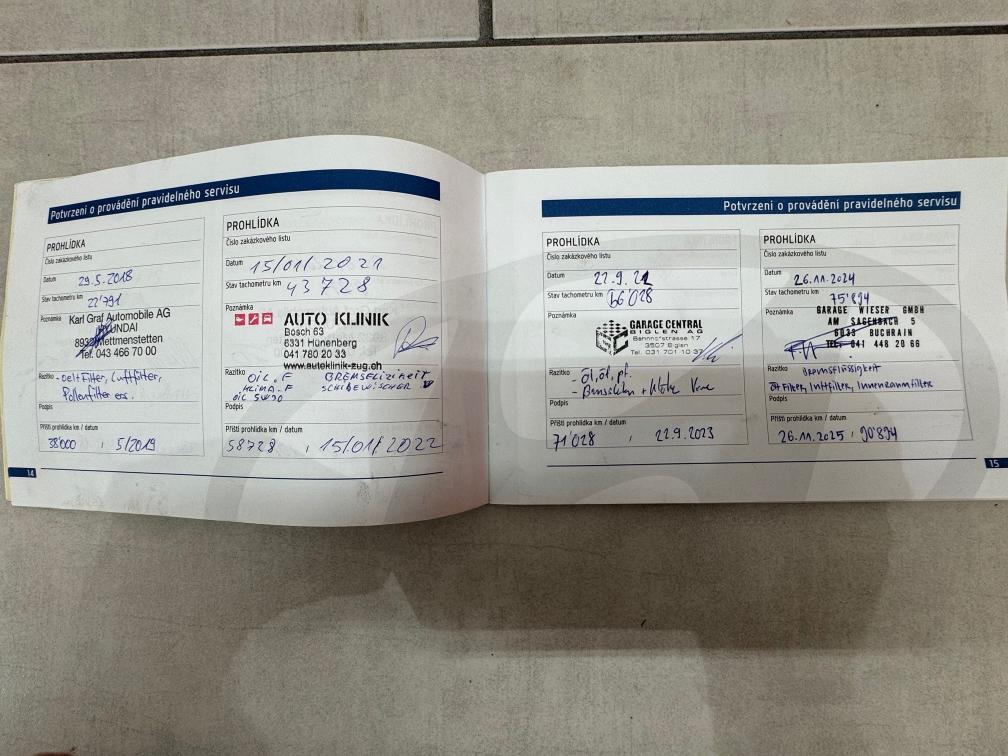 Potvrzení o provádění pravidelného servisu
PROHLÍDKA
Číslo zakázkového listu
Datum 29.5.2018
Stav tachometru km 22'791
Poznámka Karl Graf Automobile AG
HYUNDAI
8932 Mettmenstetten
Tel. 043 466 70 00
Razítko - Oelfilter, Luftfilter,
Pollenfilter ers.
Podpis
Příští prohlídka km / datum
38'000 , 5/2019
14
PROHLÍDKA
Číslo zakázkového listu
Datum 15/01/2021
Stav tachometru km 43728
Poznámka
AUTO KLINIK
Bösch 63
6331 Hünenberg
041 780 20 33
www.autoklinik-zug.ch
Razítko OIL.F BREMSFLIZIKEIT
KLIMA-F SCHIBEWISCHER
OIL 5W30
Podpis
Příští prohlídka km / datum
58728 , 15/01/2022
Potvrzení o provádění pravidelného servisu
PROHLÍDKA
Číslo zakázkového listu
Datum 22.9.22
Stav tachometru km 56'028
Poznámka
GARAGE CENTRAL
BIGLEN AG
Bahnhofstrasse 17
3507 Biglen
Tel. 031 701 10 37
Razítko - Öl, öf, pf.
Podpis
Příští prohlídka km / datum
71'028 , 22.9.2023
PROHLÍDKA
Číslo zakázkového listu
Datum 26.11.2024
Stav tachometru km 75'894
Poznámka GARAGE WIESER GMBH
AM SAGENBACH 5
6033 BUCHRAIN
TEL. 041 448 20 66
Razítko Bremsflüssigkeit
Ölfilter, Luftfilter, Innenraumfilter
Podpis
Příští prohlídka km / datum
26.11.2025 , 90'894
15